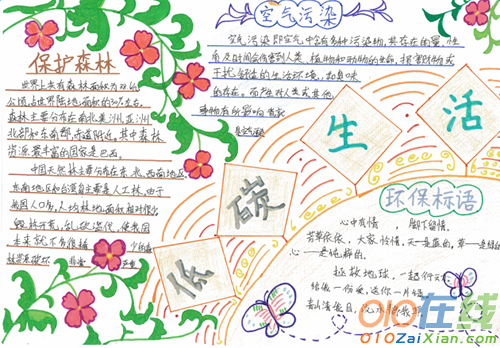 保护森林
世界上共有森林面积为
公顷，占世界陆地面积的
森林主要分布在南北美洲，亚洲
北部和东南部，赤道附近，其中森林
资源最丰富的国家是巴西。
中国天然林主要分布在东北、西南地区
东南地区和台湾自主要是人工林。由于
我国人口多，人均林地面积相对很少
毁林开荒，乱砍滥伐，使我国
未来就不多的森林
空气污染
空气污染即空气中含有多种污染物，其存在的量、性
质及时间会伤害到人类、植物和动物的生命，损害财物或
干扰舒适的生活环境，如臭味
的存在。
低碳生活
环保标语
心中有情，脚下留情。
芳草依依，大家怜惜，天一是蓝的，草一是绿的
心一是纯的。
拯救地球，一起行
给我一份爱，送你一片绿
010在线
010ZaiXian.com